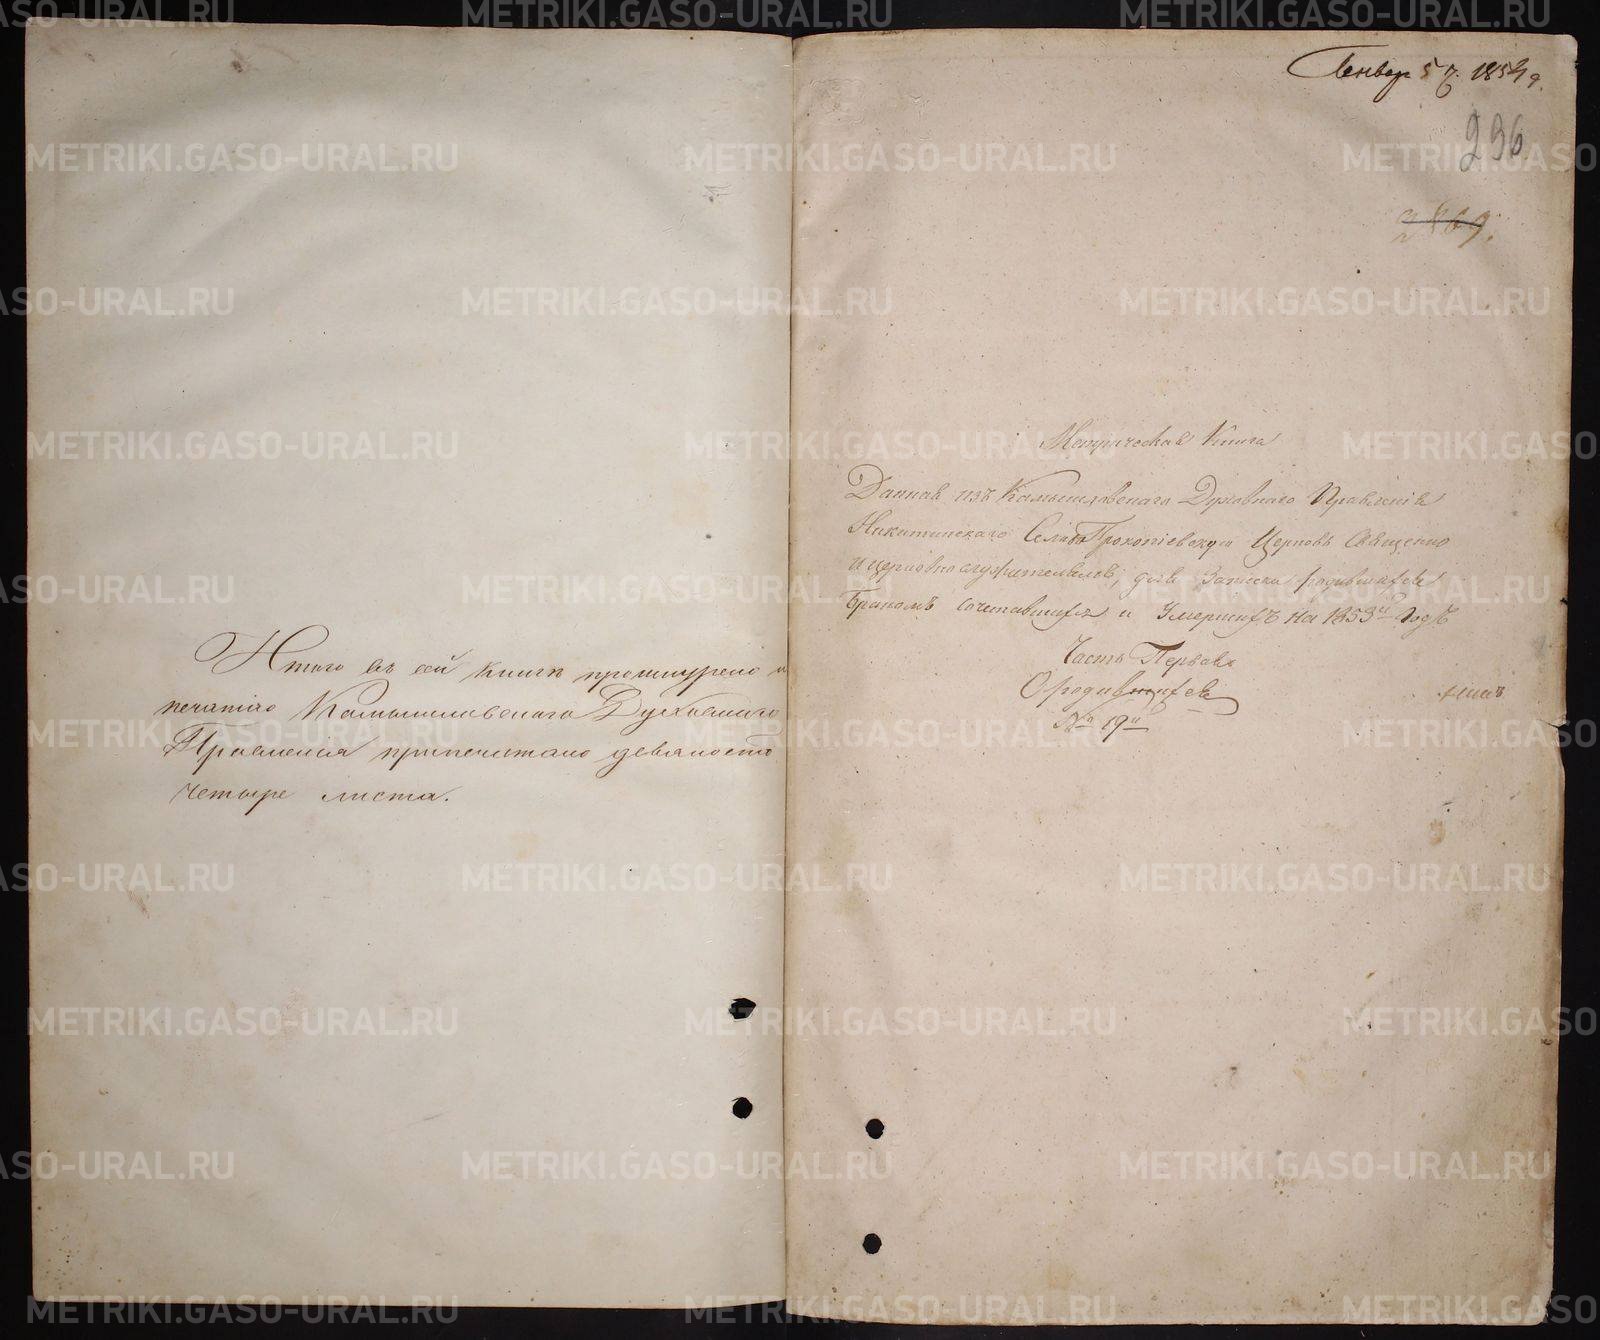 Итого въ сей книгѣ прошнурено и
печатію Камышловскаго Духовнаго
Правленія припечатано девяносто
четыре листа.
Генвар 5 1854
296
2869.
Метрическая Книга
Данная изъ Камышловскаго Духовнаго Правленія
Никитинскаго Села Прокопіевскую Церковь Священно
и церковнослужителямъ, для Записки родившихся
Бракомъ сочетавшихся и Умершихъ на 1853й Годъ
Часть Первая
О родившихся
№ 19й
METRIKI.GASO-URAL.RU